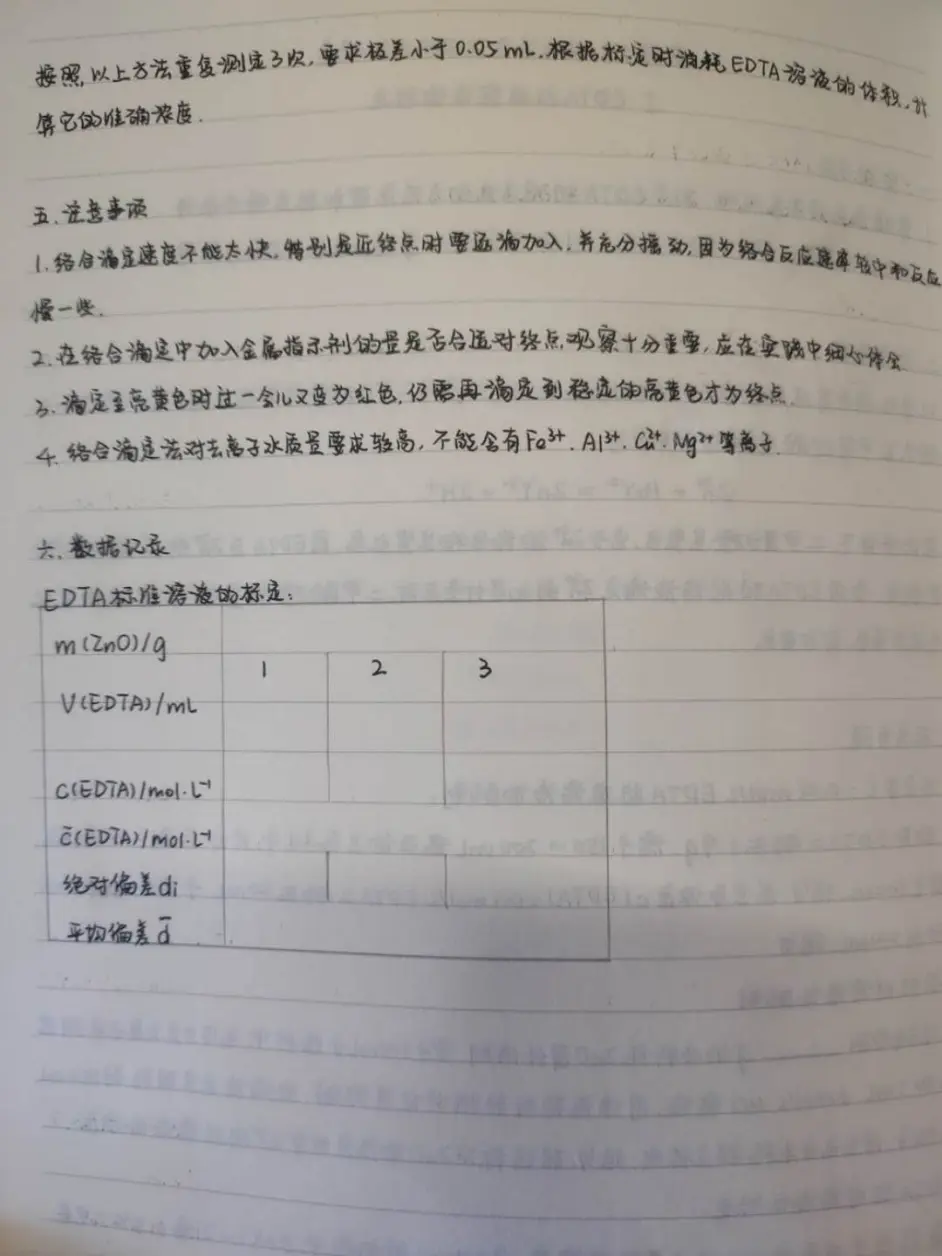 按照以上方法重复测定3次,要求极差小于0.05mL.根据标定时消耗EDTA溶液的体积,计
算它的准确浓度.
五.注意事项
1.络合滴定速度不能太快,特别是近终点时要逐滴加入,并充分摇动,因为络合反应速率较中和反应
慢一些.
2.在络合滴定中加入金属指示剂的量是否合适对终点观察十分重要,应在实践中细心体会
3.滴定至亮黄色时过一会儿又变为红色,仍需再滴定到稳定的亮黄色才为终点.
4.络合滴定法对去离子水质量要求较高,不能含有Fe³⁺.Al³⁺.Cu²⁺.Mg²⁺等离子.
六.数据记录
EDTA标准溶液的标定:
m(ZnO)/g
1 2 3
V(EDTA)/mL
C(EDTA)/mol·L⁻¹
c̄(EDTA)/mol·L⁻¹
绝对偏差di
平均偏差d̄